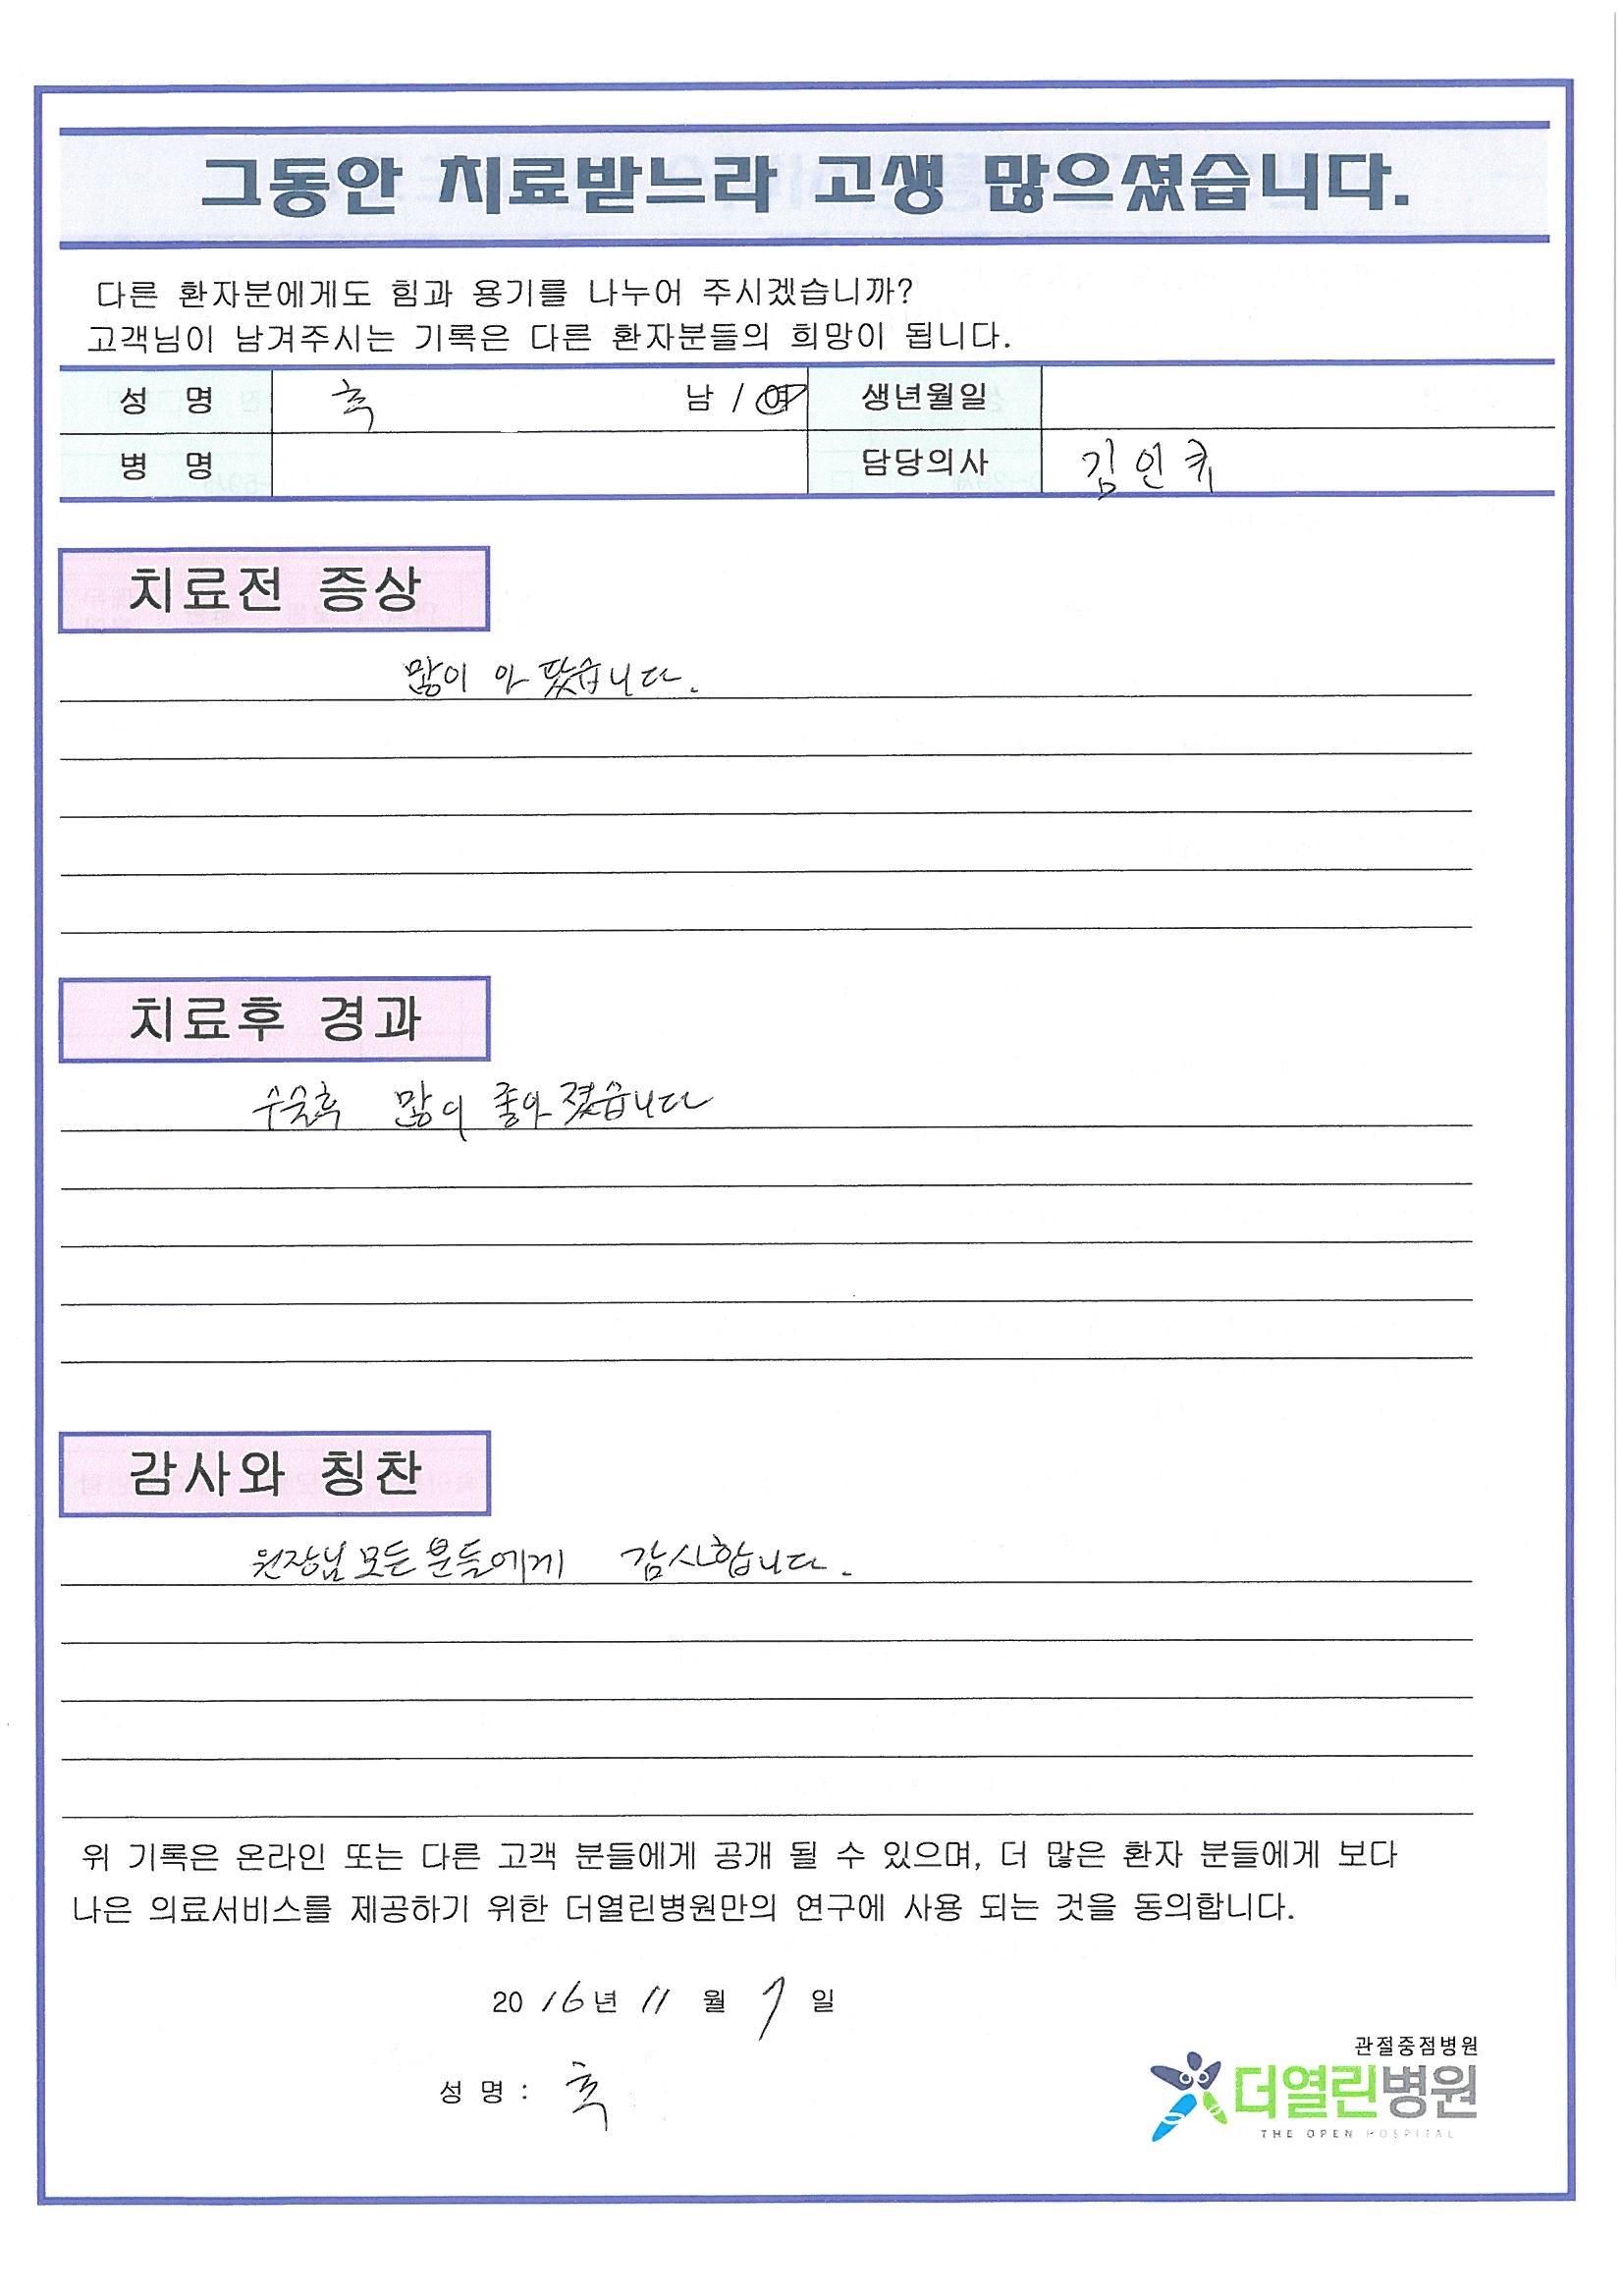 그동안 치료받느라 고생 많으셨습니다.
다른 환자분에게도 힘과 용기를 나누어 주시겠습니까?
고객님이 남겨주시는 기록은 다른 환자분들의 희망이 됩니다.
성 명 남 / 여 생년월일
병 명 담당의사 김인
치료전 증상
많이 아팠습니다.
치료후 경과
수술후 많이 좋아졌습니다
감사와 칭찬
원장님 모든 분들에게 감사합니다.
위 기록은 온라인 또는 다른 고객 분들에게 공개 될 수 있으며, 더 많은 환자 분들에게 보다
나은 의료서비스를 제공하기 위한 더열린병원만의 연구에 사용 되는 것을 동의합니다.
2016년 11월 7일
성 명 :
관절중점병원
더열린병원
THE OPEN HOSPITAL